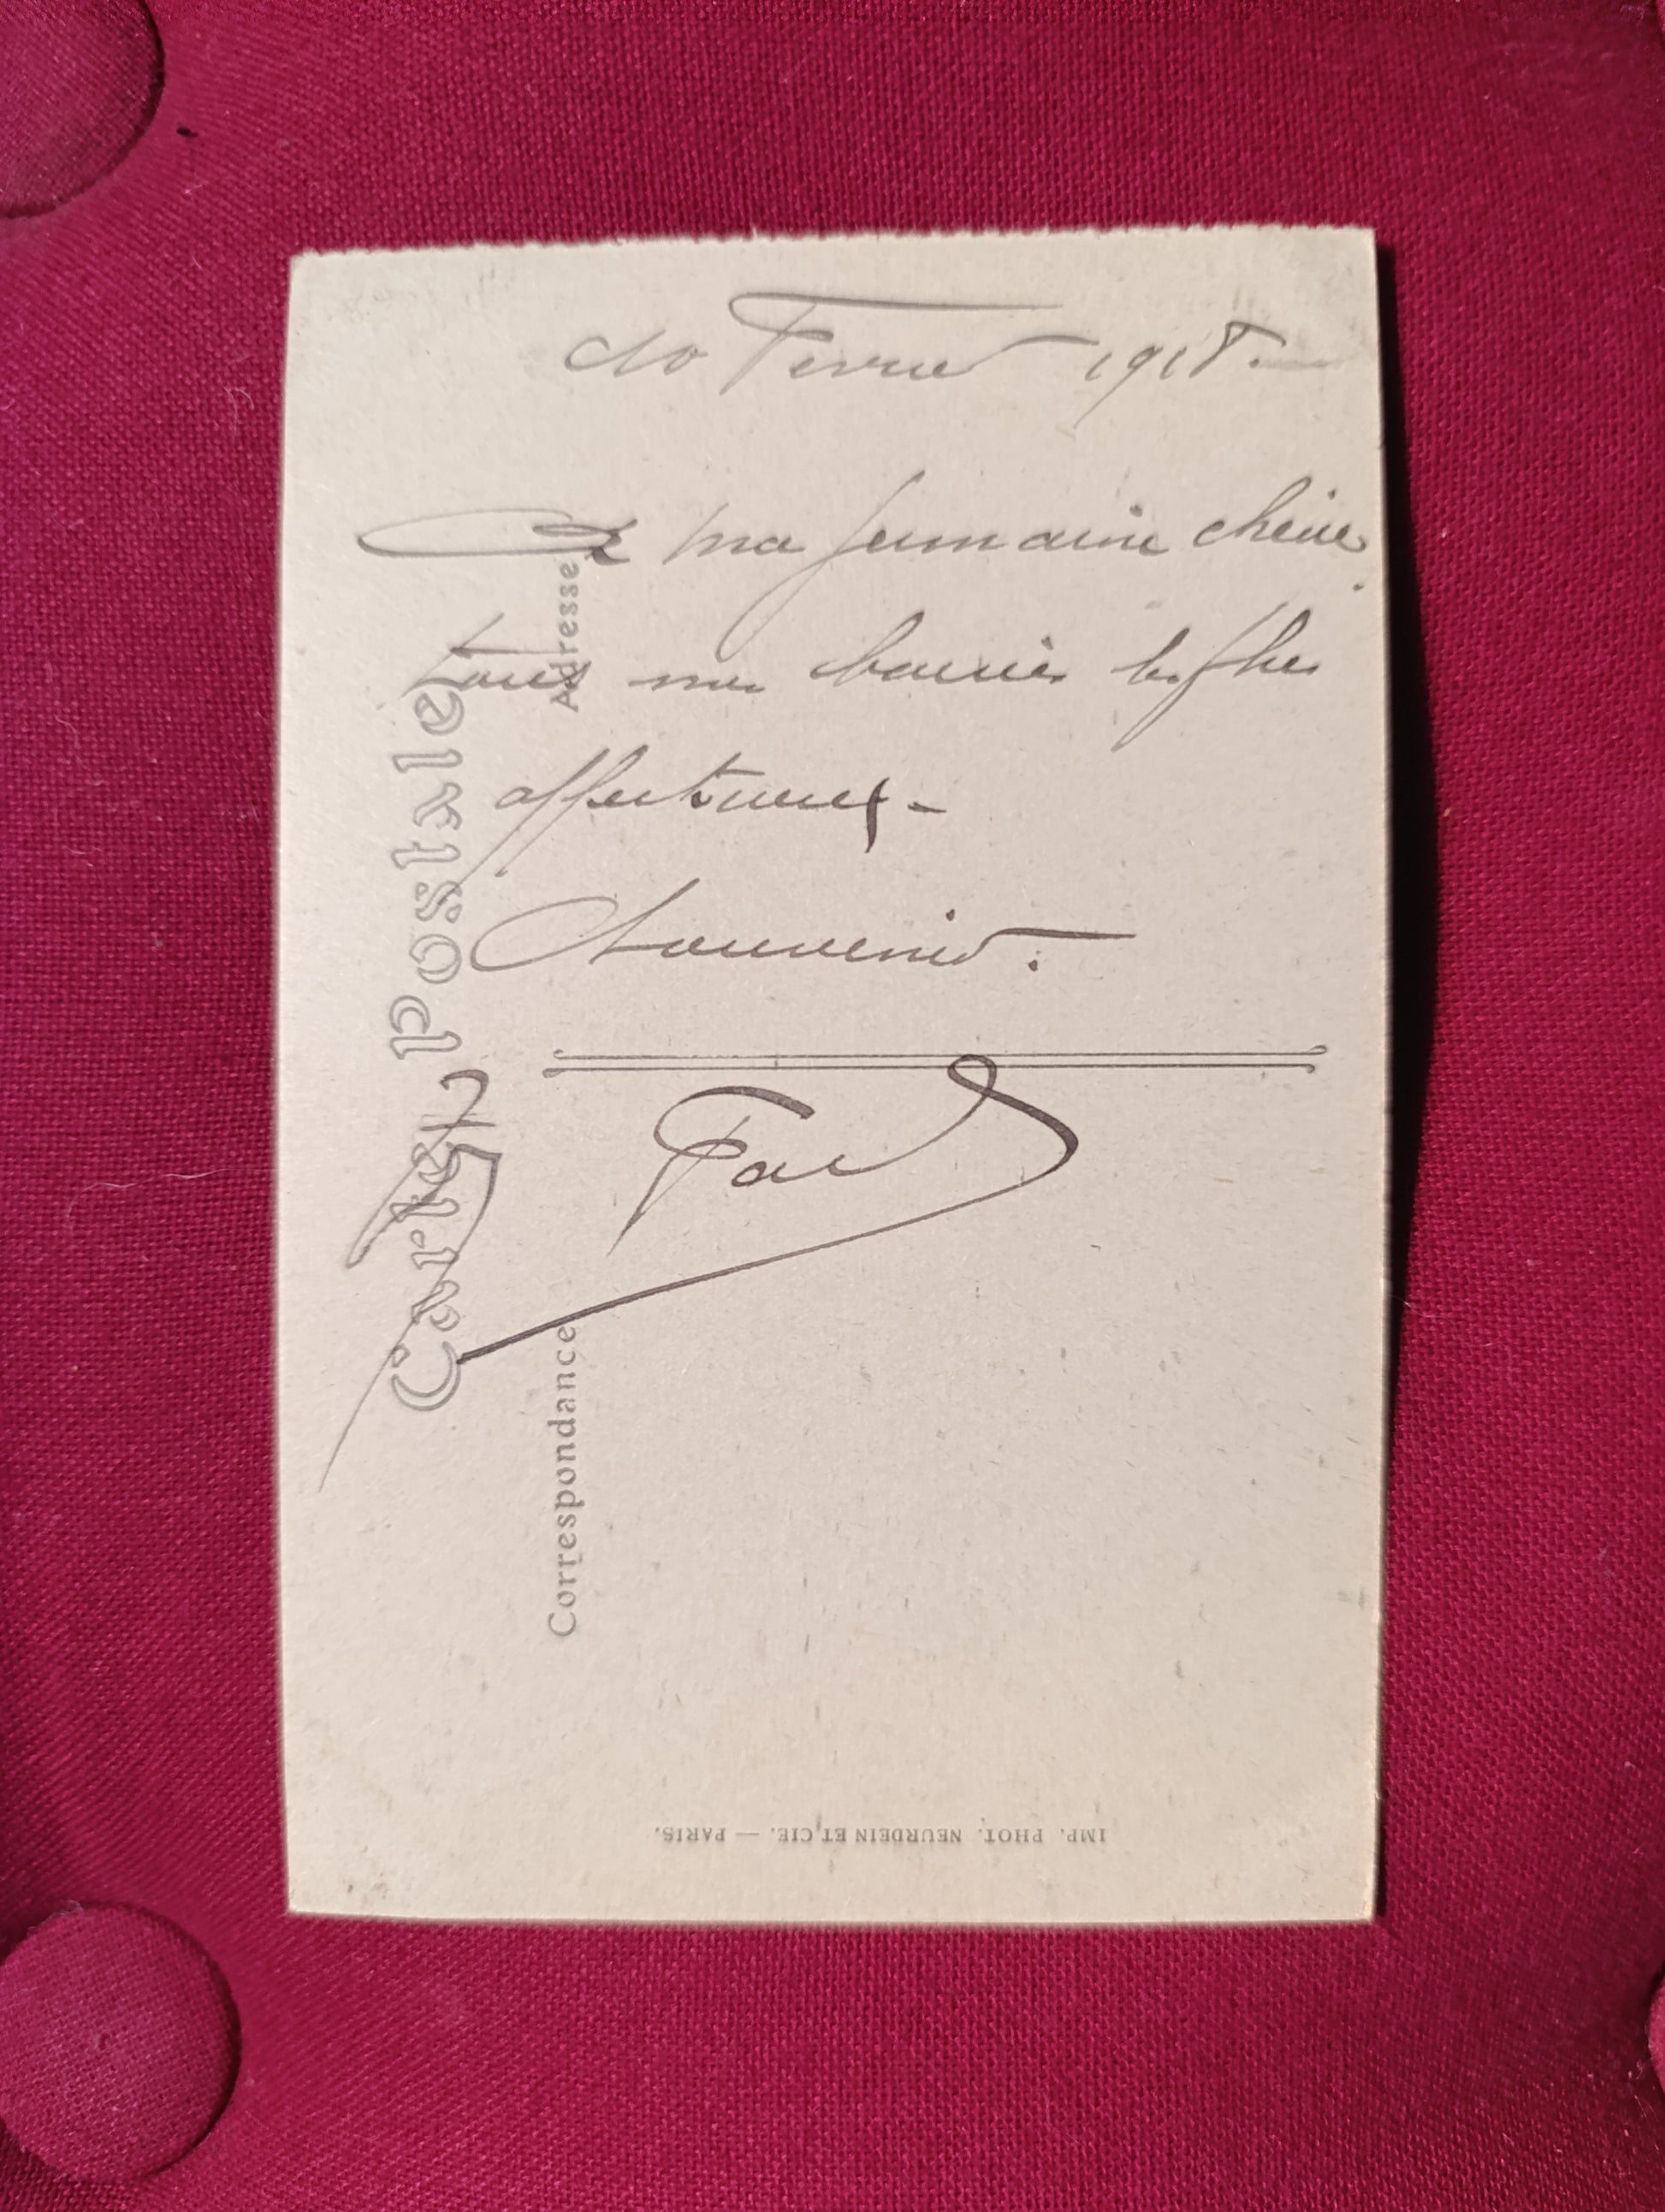 10 Fevrier 1918.
A ma Germaine cherie
tous mes baisers les plus
affectueux -
Souvenir.
Carte Postale
Adresse
Correspondance
IMP. PHOT. NEURDEIN ET CIE. — PARIS.